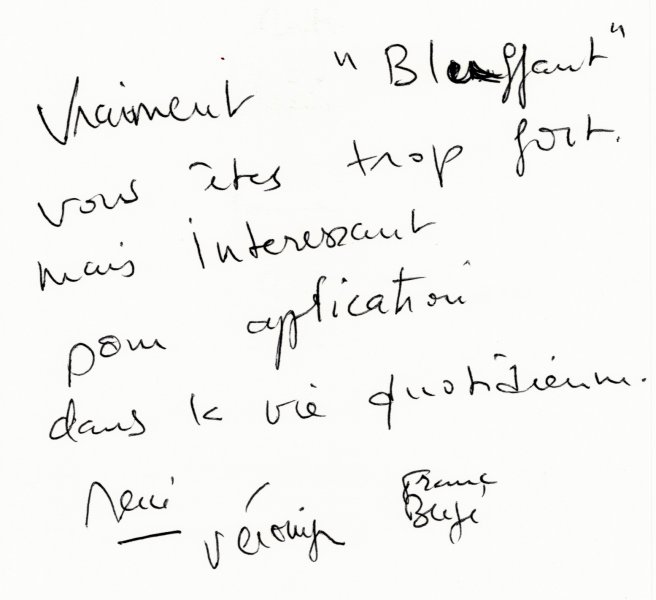 Vraiment "Bluffant"
vous êtes trop fort.
mais interessant
pour application
dans la vie quotidienne.
Merci
Véronique